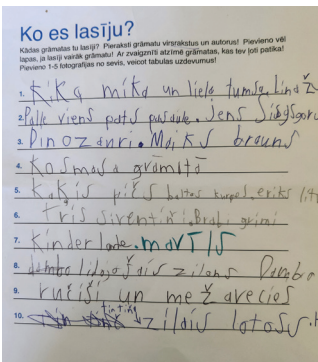 Ko es lasīju?
Kādas grāmatas tu lasīji? Pieraksti grāmatu virsrakstus un autorus! Pievieno vēl
lapas, ja lasīji vairāk grāmatu! Ar zvaigznīti atzīmē grāmatas, kas tev ļoti patika!
Pievieno 1-5 fotogrāfijas no sevis, veicot tabulas uzdevumus!
1. Kika mika un lielā tumsa. Lina Ž
2. Palle viens pats pasaulē. Jens
3. Dinozauri. Maiks brauns
4. Kosmosa grāmata
5. Kaķis pičs baltas kurpes. eriks
6. Trīs sivēntiņi. Brāļi grimi
7. Kinder lade. MARTIS
8. dambo lidojošais zilons
9. ručiši un mežā vecīos
10. zilais lotoss.